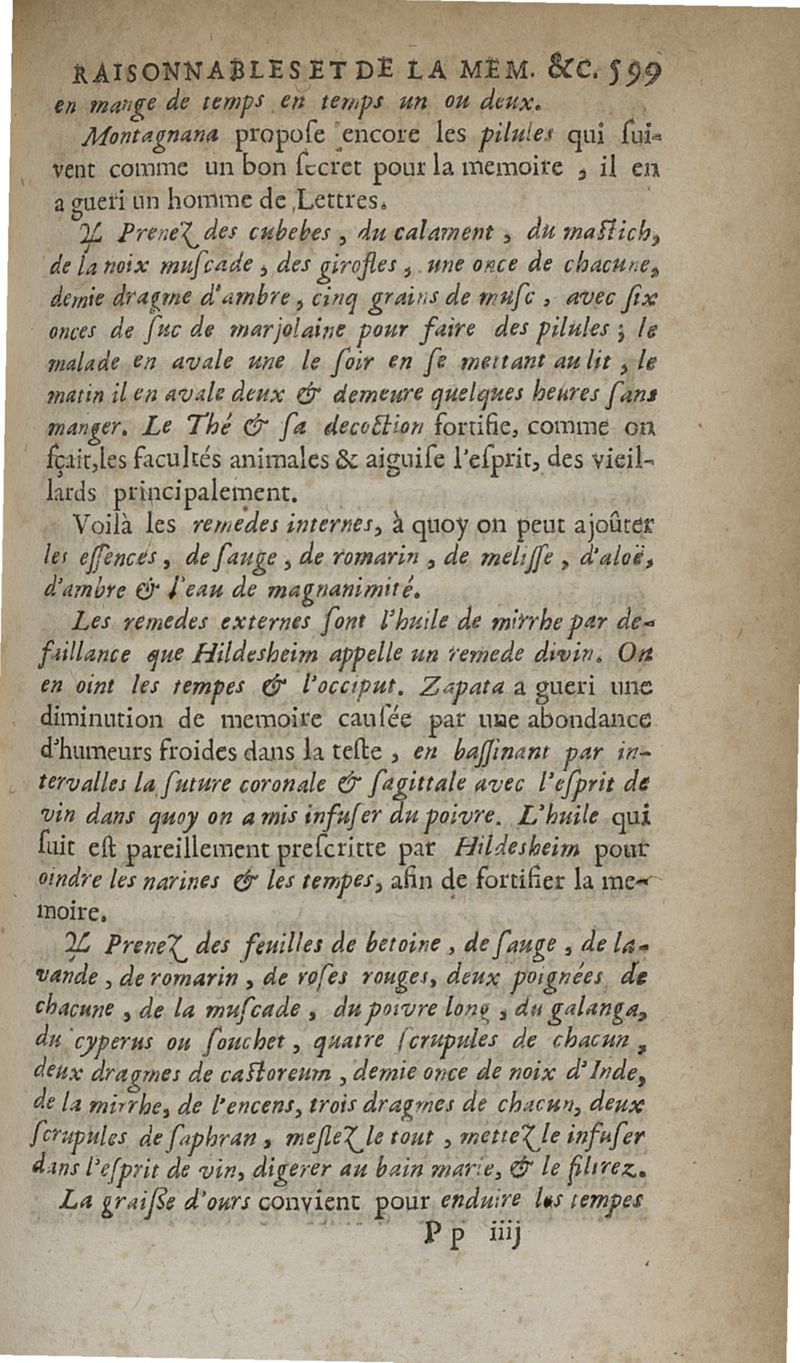 RAISONNABLES ET DE LA MEM. &C. 599
en mange de temps en temps un ou deux.
Montagnana propoſe encore les pilules qui ſui-
vent comme un bon ſecret pour la memoire , il en
a gueri un homme de Lettres.
♃ Prenez des cubebes , du calament , du maſtich,
de la noix muſcade , des girofles , une once de chacune,
demie dragme d'ambre , cinq grains de muſc , avec ſix
onces de ſuc de marjolaine pour faire des pilules ; le
malade en avale une le ſoir en ſe mettant au lit , le
matin il en avale deux & demeure quelques heures ſans
manger. Le Thé & ſa decoction fortifie, comme on
ſçait,les facultés animales & aiguiſe l'eſprit, des vieil-
lards principalement.
Voilà les remedes internes, à quoy on peut ajoûter
les eſſences , de ſauge , de romarin , de meliſſe , d'aloë,
d'ambre & l'eau de magnanimité.
Les remedes externes ſont l'huile de mirrhe par de-
faillance que Hildesheim appelle un remede divin. On
en oint les tempes & l'occiput. Zapata a gueri une
diminution de memoire cauſée par une abondance
d'humeurs froides dans la teſte , en baſſinant par in-
tervalles la ſuture coronale & ſagittale avec l'eſprit de
vin dans quoy on a mis infuſer du poivre. L'huile qui
ſuit eſt pareillement preſcritte par Hildesheim pour
oindre les narines & les tempes, afin de fortifier la me-
moire.
♃ Prenez des feuilles de betoine , de ſauge , de la-
vande , de romarin , de roſes rouges, deux poignées de
chacune , de la muſcade , du poivre long , du galanga,
du cyperus ou ſouchet , quatre ſcrupules de chacun ,
deux dragmes de caſtoreum , demie once de noix d'Inde,
de la mirrhe, de l'encens, trois dragmes de chacun, deux
ſcrupules de ſaphran , meſlez le tout , mettez le infuſer
dans l'eſprit de vin, digerer au bain marie, & le filtrez.
La graiſſe d'ours convient pour enduire les tempes
P p iiij